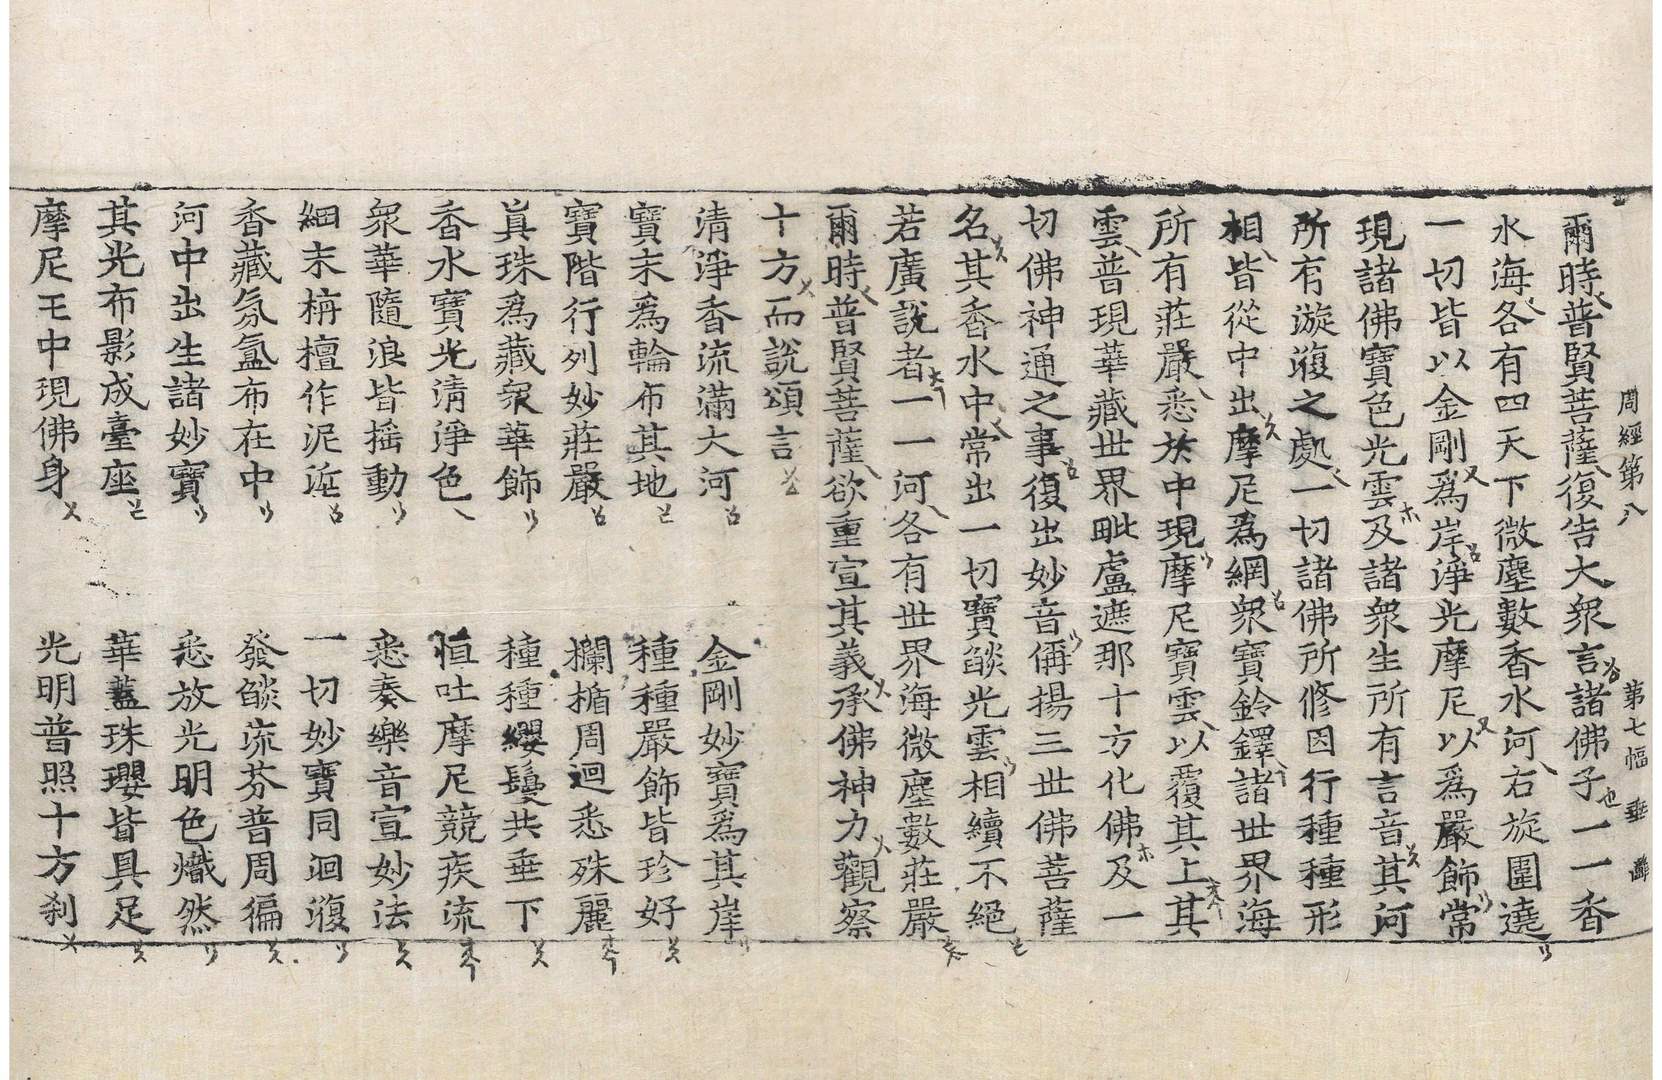 周經第八 第七幅 垂
爾時普賢菩薩復告大衆言諸佛子一一香
水海各有四天下微塵數香水河右旋圍遶
一切皆以金剛爲岸淨光摩尼以爲嚴飾常
現諸佛寶色光雲及諸衆生所有言音其河
所有漩澓之處一切諸佛所修因行種種形
相皆從中出摩尼爲網衆寶鈴鐸諸世界海
所有莊嚴悉於中現摩尼寶雲以覆其上其
雲普現華藏世界毗盧遮那十方化佛及一
切佛神通之事復出妙音偁揚三世佛菩薩
名其香水中常出一切寶燄光雲相續不絕
若廣說者一一河各有世界海微塵數莊嚴
爾時普賢菩薩欲重宣其義承佛神力觀察
十方而說頌言
清淨香流滿大河 金剛妙寶爲其岸
寶末爲輪布其地 種種嚴飾皆珍好
寶階行列妙莊嚴 欄楯周迴悉殊麗
眞珠爲藏衆華飾 種種纓鬘共垂下
香水寶光清淨色 恒吐摩尼競疾流
衆華隨浪皆搖動 悉奏樂音宣妙法
細末栴檀作泥垽 一切妙寶同洄澓
香藏氛氳布在中 發燄流芬普周徧
河中出生諸妙寶 悉放光明色熾然
其光布影成臺座 華蓋珠瓔皆具足
摩尼王中現佛身 光明普照十方刹